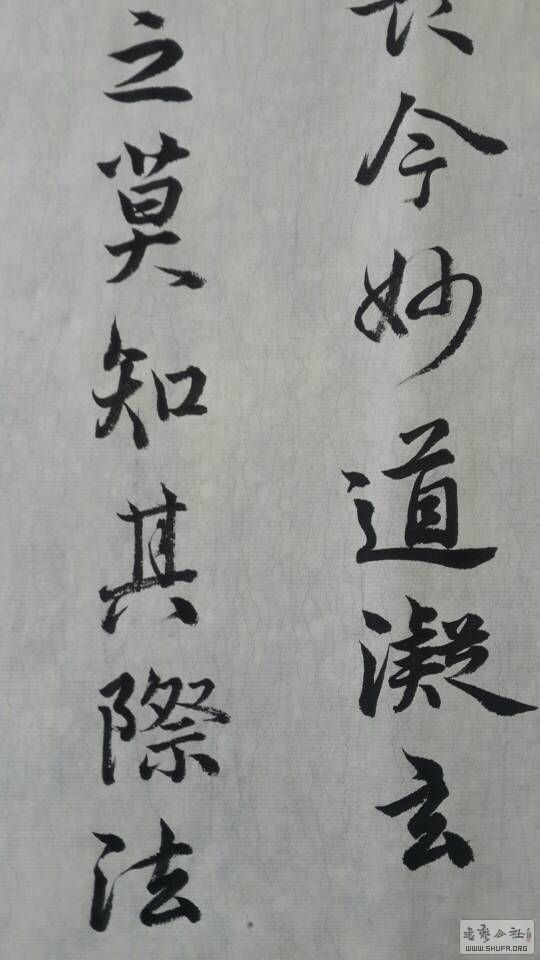 今妙道凝玄
之莫知其際法
WWW.SHUFA.ORG